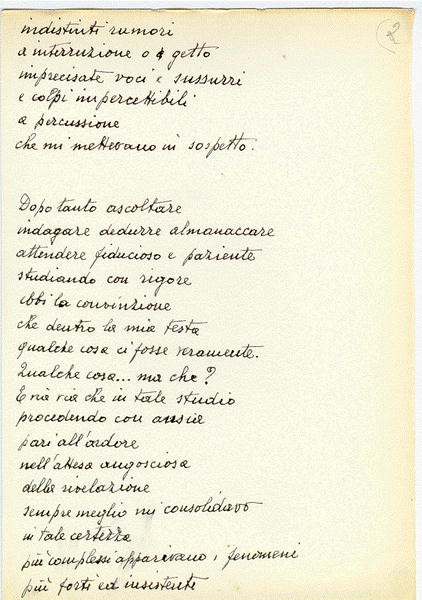 2
indistinti rumori
a interruzione o a getto
imprecisate voci e sussurri
e colpi impercettibili
a percussione
che mi mettevano in sospetto.
Dopo tanto ascoltare
indagare dedurre almanaccare
attendere fiducioso e paziente
studiando con rigore
ebbi la convinzione
che dentro la mia testa
qualche cosa ci fosse veramente.
Qualche cosa... ma che?
E via via che in tale studio
procedendo con ansia
pari all'ardore
nell'attesa angosciosa
della rivelazione
sempre meglio mi consolidavo
in tale certezza
più complessi apparivano i fenomeni
più forti ed insistenti